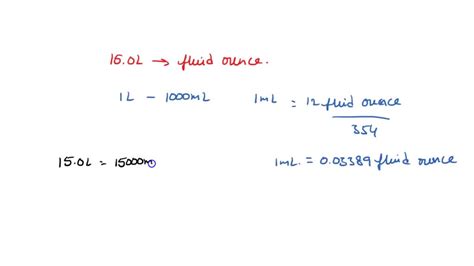 15.0L → fluid ounce.
1L - 1000mL
1mL = 12 fluid ounce
354
15.0L = 15000m
1mL. = 0.03389 fluid ounce